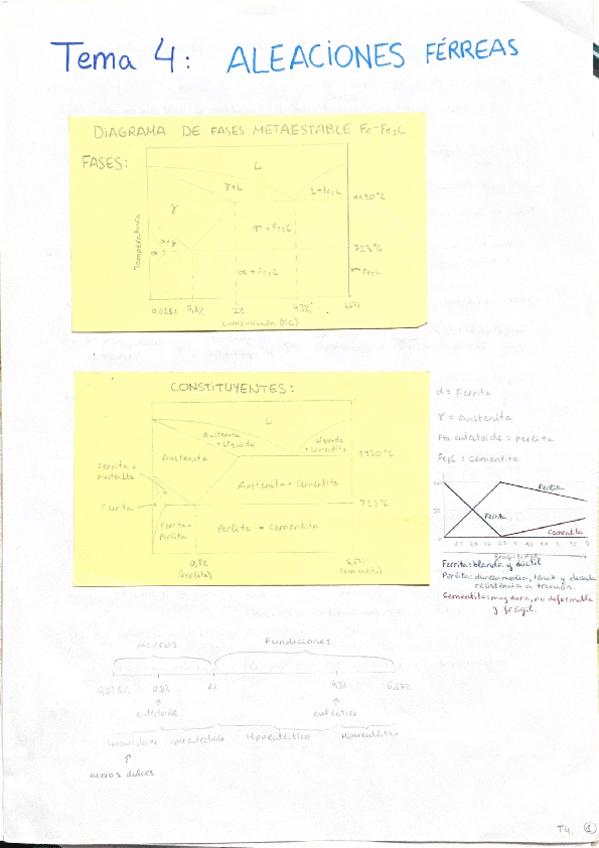 Tema 4: ALEACIONES FÉRREAS
DIAGRAMA DE FASES METAESTABLE Fe-Fe3C
FASES:
L
γ+L
L+Fe3C
1130°C
γ
γ+Fe3C
α+γ
723°C
α
α+Fe3C
Fe3C
Temperatura
0,025%
0,8%
2%
4,3%
6,67%
composición (%C)
CONSTITUYENTES:
L
Austenita + líquido
líquido + cementita
Austenita
1130°C
Ferrita + austenita
Austenita + Cementita
Ferrita
723°C
Ferrita + Perlita
Perlita + Cementita
0,8%
(Perlita)
6,67%
(Cementita)
α = Ferrita
γ = Austenita
Pto. eutectoide = Perlita
Fe3C = Cementita
100
50
Perlita
Ferrita
Cementita
Ferrita: blanda y dúctil
Perlita: dureza media, tenaz y elevada
resistencia a tracción.
Cementita: muy dura, no deformable
y frágil.
Aceros
Fundiciones
0,025%
0,8%
2%
4,3%
6,67%
eutectoide
eutéctico
Hipoeutectoide
Hipereutectoide
Hipoeutéctico
Hipereutéctico
aceros dulces
T4. 1